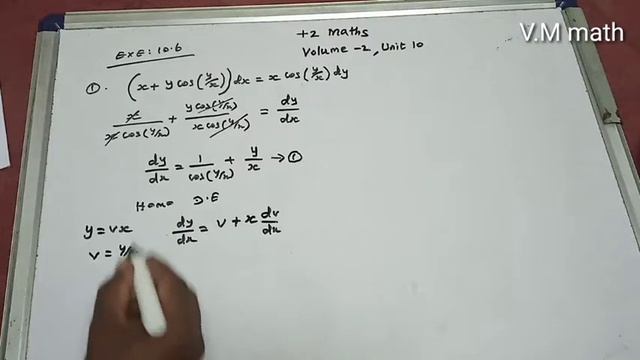 V.M math
+2 maths
Volume -2, Unit 10
EXE: 10.6
①. (x + y cos(y/x)) dx = x cos(y/x) dy
x / x cos(y/x) + y cos(y/x) / x cos(y/x) = dy/dx
dy/dx = 1/cos(y/x) + y/x → ①
Homo D.E
y = vx dy/dx = v + x dv/dx
v = y/x